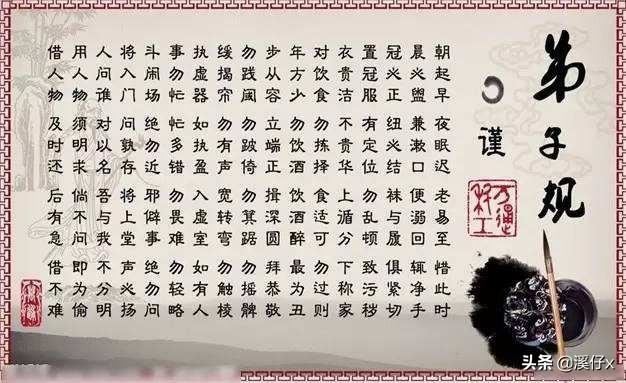 弟子规
谨
朝起早 夜眠迟 老易至 惜此时
晨必盥 兼漱口 便溺回 辄净手
冠必正 纽必结 袜与履 俱紧切
置冠服 有定位 勿乱顿 致污秽
衣贵洁 不贵华 上循分 下称家
对饮食 勿拣择 食适可 勿过则
年方少 勿饮酒 饮酒醉 最为丑
步从容 立端正 揖深圆 拜恭敬
勿践阈 勿跛倚 勿箕踞 勿摇髀
缓揭帘 勿有声 宽转弯 勿触棱
执虚器 如执盈 入虚室 如有人
事勿忙 忙多错 勿畏难 勿轻略
斗闹场 绝勿近 邪僻事 绝勿问
将入门 问孰存 将上堂 声必扬
人问谁 对以名 吾与我 不分明
用人物 须明求 倘不问 即为偷
借人物 及时还 后有急 借不难
头条 @溪仔x